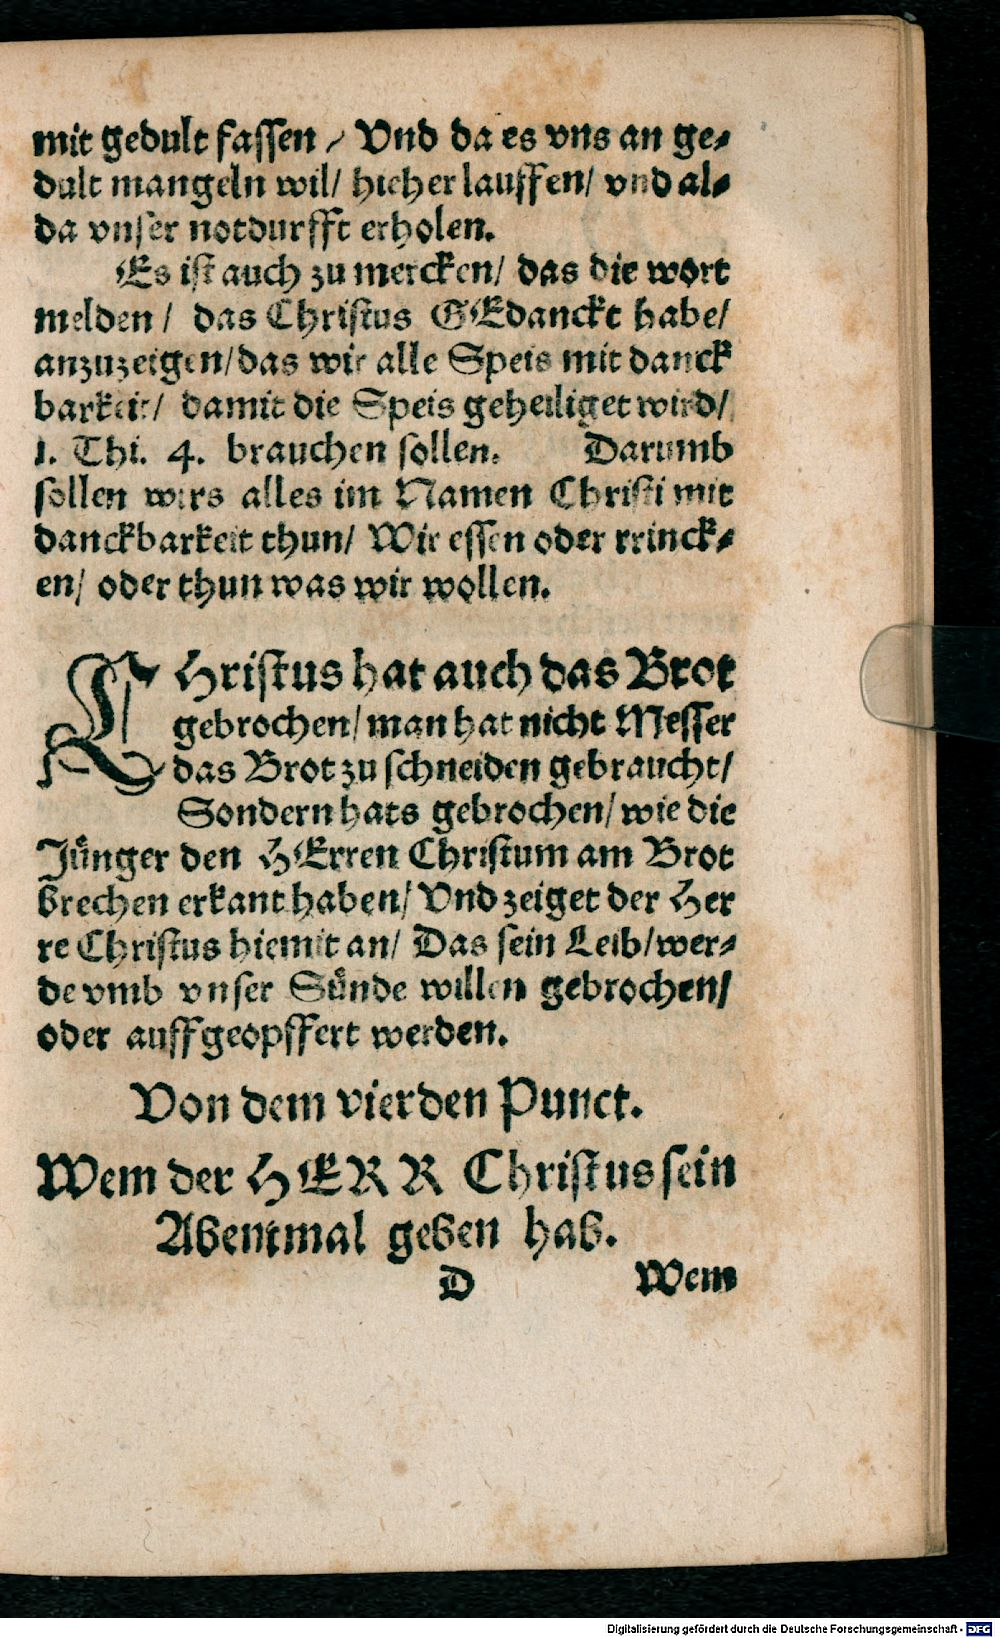 mit gedult fassen / Vnd da es vns an ge⸗
dult mangeln wil/ hieher lauffen/ vnd al⸗
da vnser notdurfft erholen.
Es ist auch zu mercken/ das die wort
melden/ das Christus GEdanckt habe/
anzuzeigen/ das wir alle Speis mit danck
barkeit/ damit die Speis geheiliget wird/
1. Thi. 4. brauchen sollen. Darumb
sollen wirs alles im Namen Christi mit
danckbarkeit thun/ Wir essen oder trinck⸗
en/ oder thun was wir wollen.
CHristus hat auch das Brot
gebrochen/ man hat nicht Messer
das Brot zu schneiden gebraucht/
Sondern hats gebrochen/ wie die
Jünger den HErren Christum am Brot
brechen erkant haben/ Vnd zeiget der Her
re Christus hiemit an/ Das sein Leib/ wer⸗
de vmb vnser Sünde willen gebrochen/
oder auffgeopffert werden.
Von dem vierden Punct.
Wem der HERR Christus sein
Abentmal geben hab.
D Wem
Digitalisierung gefördert durch die Deutsche Forschungsgemeinschaft - DFG